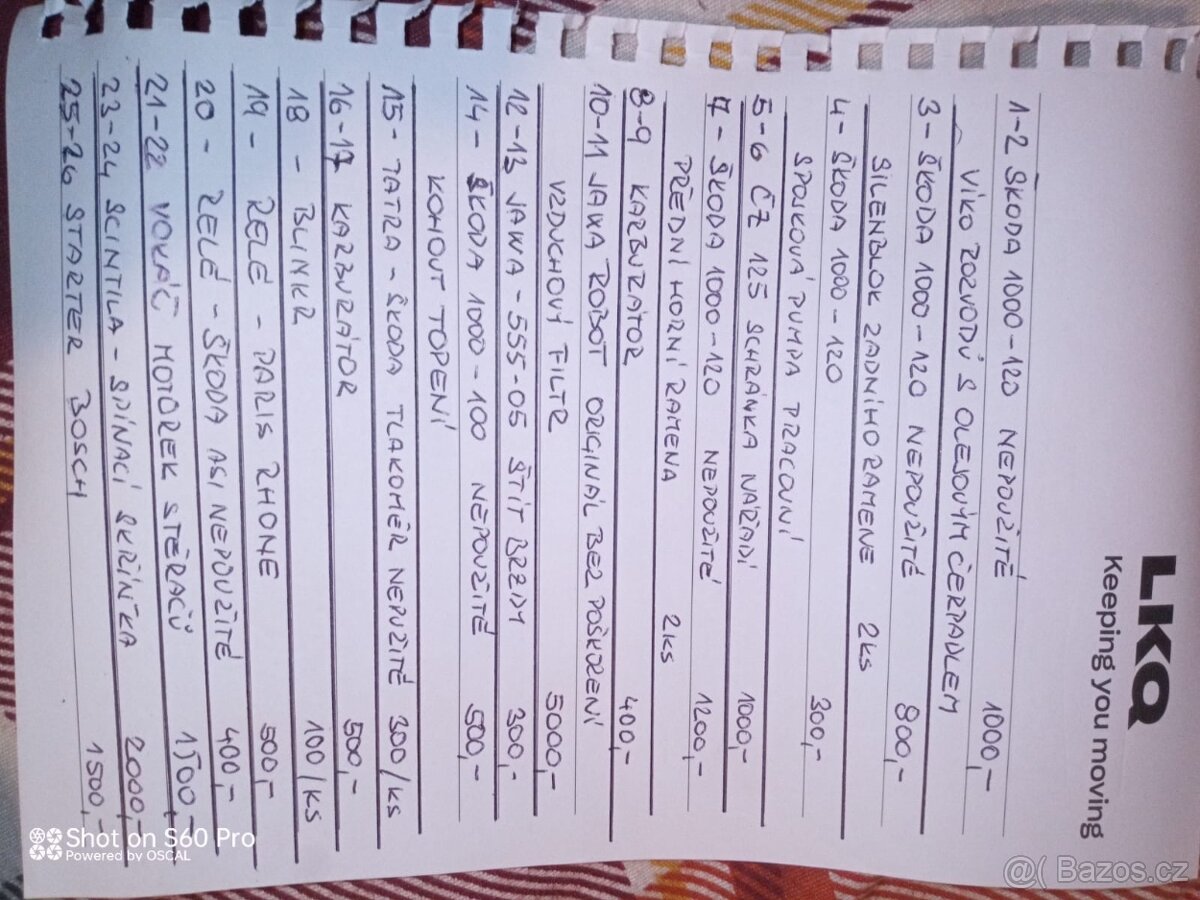 LKQ
Keeping you moving
1-2 ŠKODA 1000-120 NEPOUŽITÉ 1000,-
VÍKO ROZVODŮ S OLEJOVÝM ČERPADLEM
3- ŠKODA 1000-120 NEPOUŽITÉ 800,-
SILENBLOK ZADNÍHO RAMENE 2KS
4- ŠKODA 1000-120
SPOJKOVÁ PUMPA PRACOVNÍ 300,-
5-6 ČZ 125 SCHRÁNKA NÁŘADÍ 1000,-
7- ŠKODA 1000-120 NEPOUŽITÉ 1200,-
PŘEDNÍ HORNÍ RAMENA 2KS
8-9 KARBURÁTOR 400,-
10-11 JAWA ROBOT ORIGINÁL BEZ POŠKOZENÍ
VZDUCHOVÝ FILTR 5000,-
12-13 JAWA-555-05 ŠTÍT BRZDY 300,-
14- ŠKODA 1000-100 NEPOUŽITÉ 500,-
KOHOUT TOPENÍ
15- TATRA-ŠKODA TLAKOMĚR NEPUŽITÉ 300/KS
16-17 KARBURÁTOR 500,-
18 - BLINKR 100/KS
19 - RELÉ - PARIS RHONE 500,-
20 - RELÉ - ŠKODA ASI NEPOUŽITÉ 400,-
21-22 VOKÁČ MOTOREK STĚRAČŮ 1500,-
23-24 SCINTILA - SPÍNACÍ SKŘÍŇKA 2000,-
25-26 STARTER BOSCH 1500,-
Shot on S60 Pro
Powered by OSCAL
@( Bazos.cz